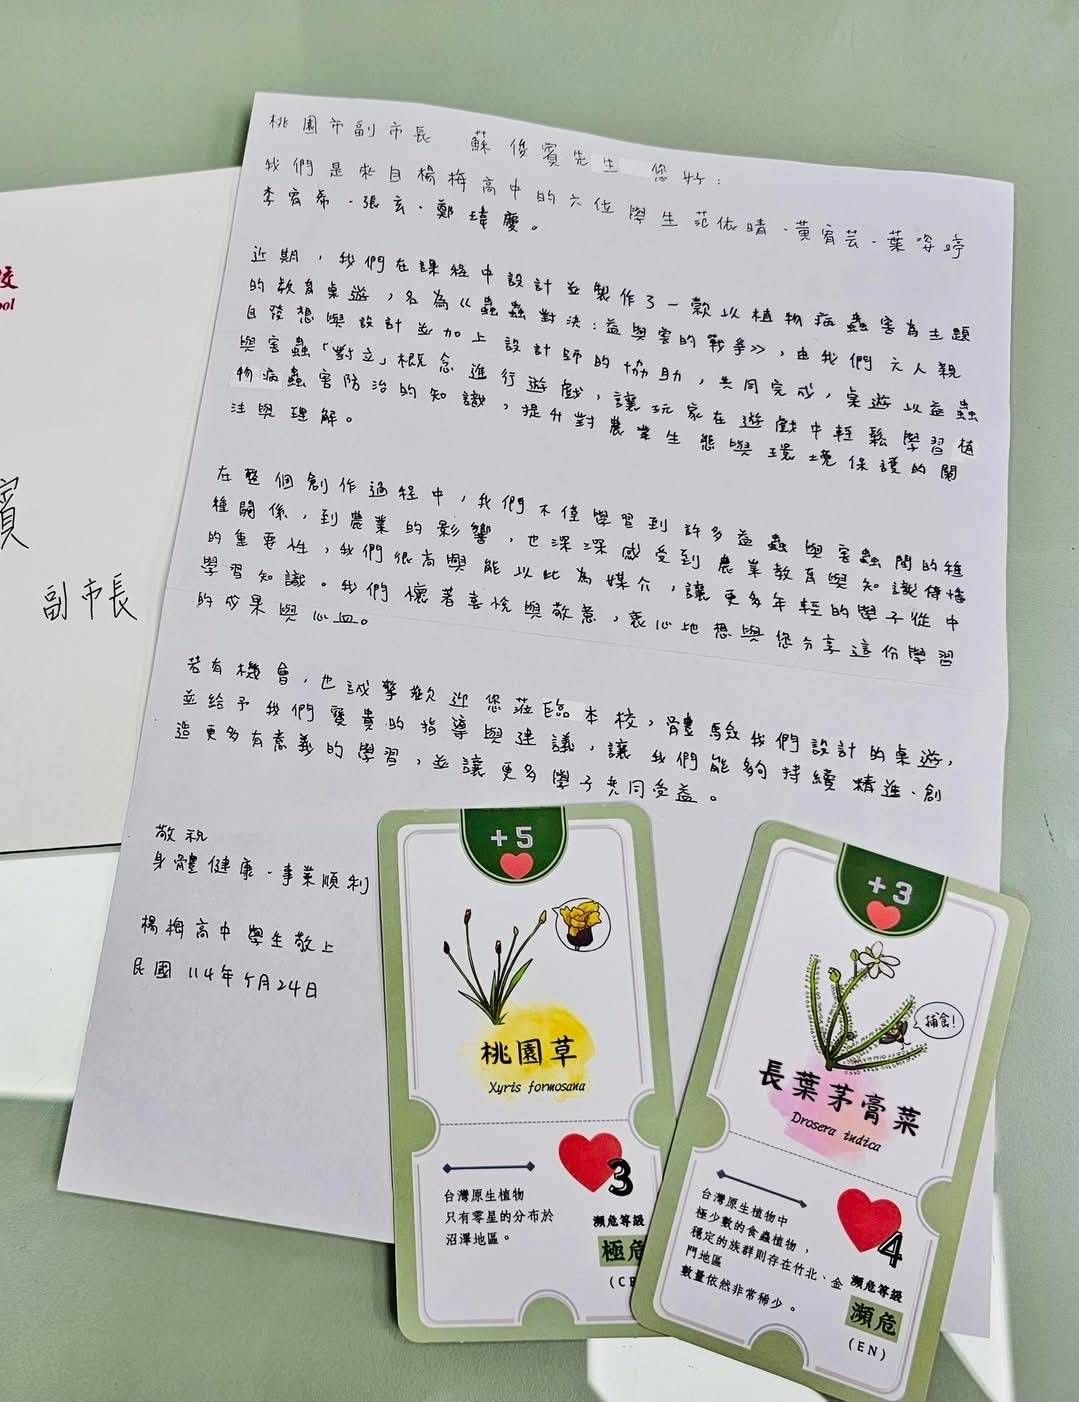 校
ool
賓
副市長
桃園市副市長 蘇俊賓先生 您好：
我們是來自楊梅高中的六位學生范依晴、黃宥芸、葉姿婷
李宥希、張玄、鄭瑋慶。
近期，我們在課程中設計並製作了一款以植物病蟲害為主題
的教育桌遊，名為《蟲蟲對決：益與害的戰爭》，由我們六人親
自發想與設計並加上設計師的協助，共同完成，桌遊以益蟲
與害蟲「對立」概念進行遊戲，讓玩家在遊戲中輕鬆學習植
物病蟲害防治的知識，提升對農業生態與環境保護的關
注與理解。
在整個創作過程中，我們不僅學習到許多益蟲與害蟲間的種
種關係，到農業的影響，也深深感受到農業教育與知識傳播
的重要性，我們很高興能以此為媒介，讓更多年輕的學子從中
學習知識。我們懷著喜悅與敬意，衷心地想與您分享這份學習
的成果與心血。
若有機會，也誠摯歡迎您蒞臨本校，體驗我們設計的桌遊，
並給予我們寶貴的指導與建議，讓我們能夠持續精進、創
造更多有意義的學習，並讓更多學子共同受益。
敬祝
身體健康、事業順利
楊梅高中學生敬上
民國114年5月24日
+5
桃園草
Xyris formosana
3
台灣原生植物
只有零星的分布於
沼澤地區。
瀕危等級
極危
(C
+3
捕食!
長葉茅膏菜
Drosera indica
4
台灣原生植物中
極少數的食蟲植物，
穩定的族群則存在竹北、金
門地區
數量依然非常稀少。
瀕危等級
瀕危
(EN)